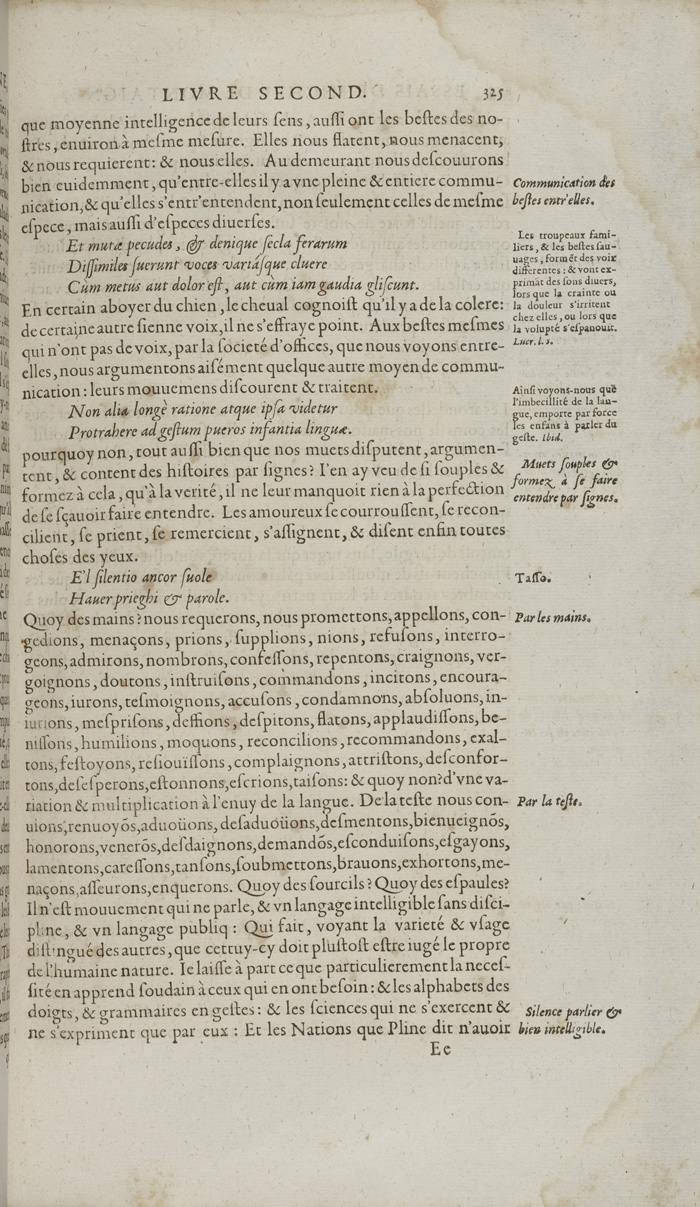 LIVRE SECOND. 325
que moyenne intelligence de leurs ſens, auſſi ont les beſtes des no-
ſtres, enuiron à meſme meſure. Elles nous flatent, nous menacent,
& nous requierent: & nous elles. Au demeurant nous deſcouurons
bien euidemment, qu'entre-elles il y a vne pleine & entiere commu-
nication, & qu'elles s'entr'entendent, non ſeulement celles de meſme
eſpece, mais auſſi d'eſpeces diuerſes.
Communication des
beſtes entr'elles.
Et mutæ pecudes, & denique ſecla ferarum
Diſſimiles fuerunt voces variáſque cluere
Cùm metus aut dolor eſt, aut cùm iam gaudia gliſcunt.
Les troupeaux fami-
liers, & les beſtes ſau-
uages, formẽt des voix
differentes: & vont ex-
primãt des ſons diuers,
lors que la crainte ou
la douleur s'irritent
chez elles, ou lors que
la volupté s'eſpanouit.
Lucr. l. 5.
En certain aboyer du chien, le cheual cognoiſt qu'il y a de la colere:
de certaine autre ſienne voix, il ne s'effraye point. Aux beſtes meſmes
qui n'ont pas de voix, par la ſocieté d'offices, que nous voyons entre-
elles, nous argumentons aiſément quelque autre moyen de commu-
nication: leurs mouuemens diſcourent & traitent.
Non alia longè ratione atque ipſa videtur
Protrahere ad geſtum pueros infantia linguæ.
Ainſi voyons-nous què
l'imbecillité de la lan-
gue, emporte par force
les enfans à parler du
geſte. Ibid.
pourquoy non, tout auſſi bien que nos muets diſputent, argumen-
tent, & content des hiſtoires par ſignes? I'en ay veu de ſi ſouples &
formez à cela, qu'à la verité, il ne leur manquoit rien à la perfection
de ſe ſçauoir faire entendre. Les amoureux ſe courrouſſent, ſe recon-
cilient, ſe prient, ſe remercient, s'aſſignent, & diſent enfin toutes
choſes des yeux.
Muets ſouples &
formez à ſe faire
entendre par ſignes.
E'l ſilentio ancor ſuole
Hauer prieghi & parole.
Taſſo.
Quoy des mains? nous requerons, nous promettons, appellons, con-
gedions, menaçons, prions, ſupplions, nions, refuſons, interro-
geons, admirons, nombrons, confeſſons, repentons, craignons, ver-
goignons, doutons, inſtruiſons, commandons, incitons, encoura-
geons, iurons, teſmoignons, accuſons, condamnons, abſoluons, in-
iurions, meſpriſons, deffions, deſpitons, flatons, applaudiſſons, be-
niſſons, humilions, moquons, reconcilions, recommandons, exal-
tons, feſtoyons, reſiouïſſons, complaignons, attriſtons, deſconfor-
tons, deſeſperons, eſtonnons, eſcrions, taiſons: & quoy non? d'vne va-
riation & multiplication à l'enuy de la langue. De la teſte nous con-
uions, renuoyõs, aduoüons, deſaduoüons, deſmentons, bienueignõs,
honorons, venerõs, deſdaignons, demandõs, eſconduiſons, eſgayons,
lamentons, careſſons, tanſons, ſoubmettons, brauons, exhortons, me-
naçons, aſſeurons, enquerons. Quoy des ſourcils? Quoy des eſpaules?
Il n'eſt mouuement qui ne parle, & vn langage intelligible ſans diſci-
pline, & vn langage publiq: Qui fait, voyant la varieté & vſage
diſtingué des autres, que cettuy-cy doit pluſtoſt eſtre iugé le propre
de l'humaine nature. Ie laiſſe à part ce que particulierement la neceſ-
ſité en apprend ſoudain à ceux qui en ont beſoin: & les alphabets des
doigts, & grammaires en geſtes: & les ſciences qui ne s'exercent &
ne s'expriment que par eux: Et les Nations que Pline dit n'auoir
Par les mains.
Par la teſte.
Silence parlier &
bien intelligible.
Ee